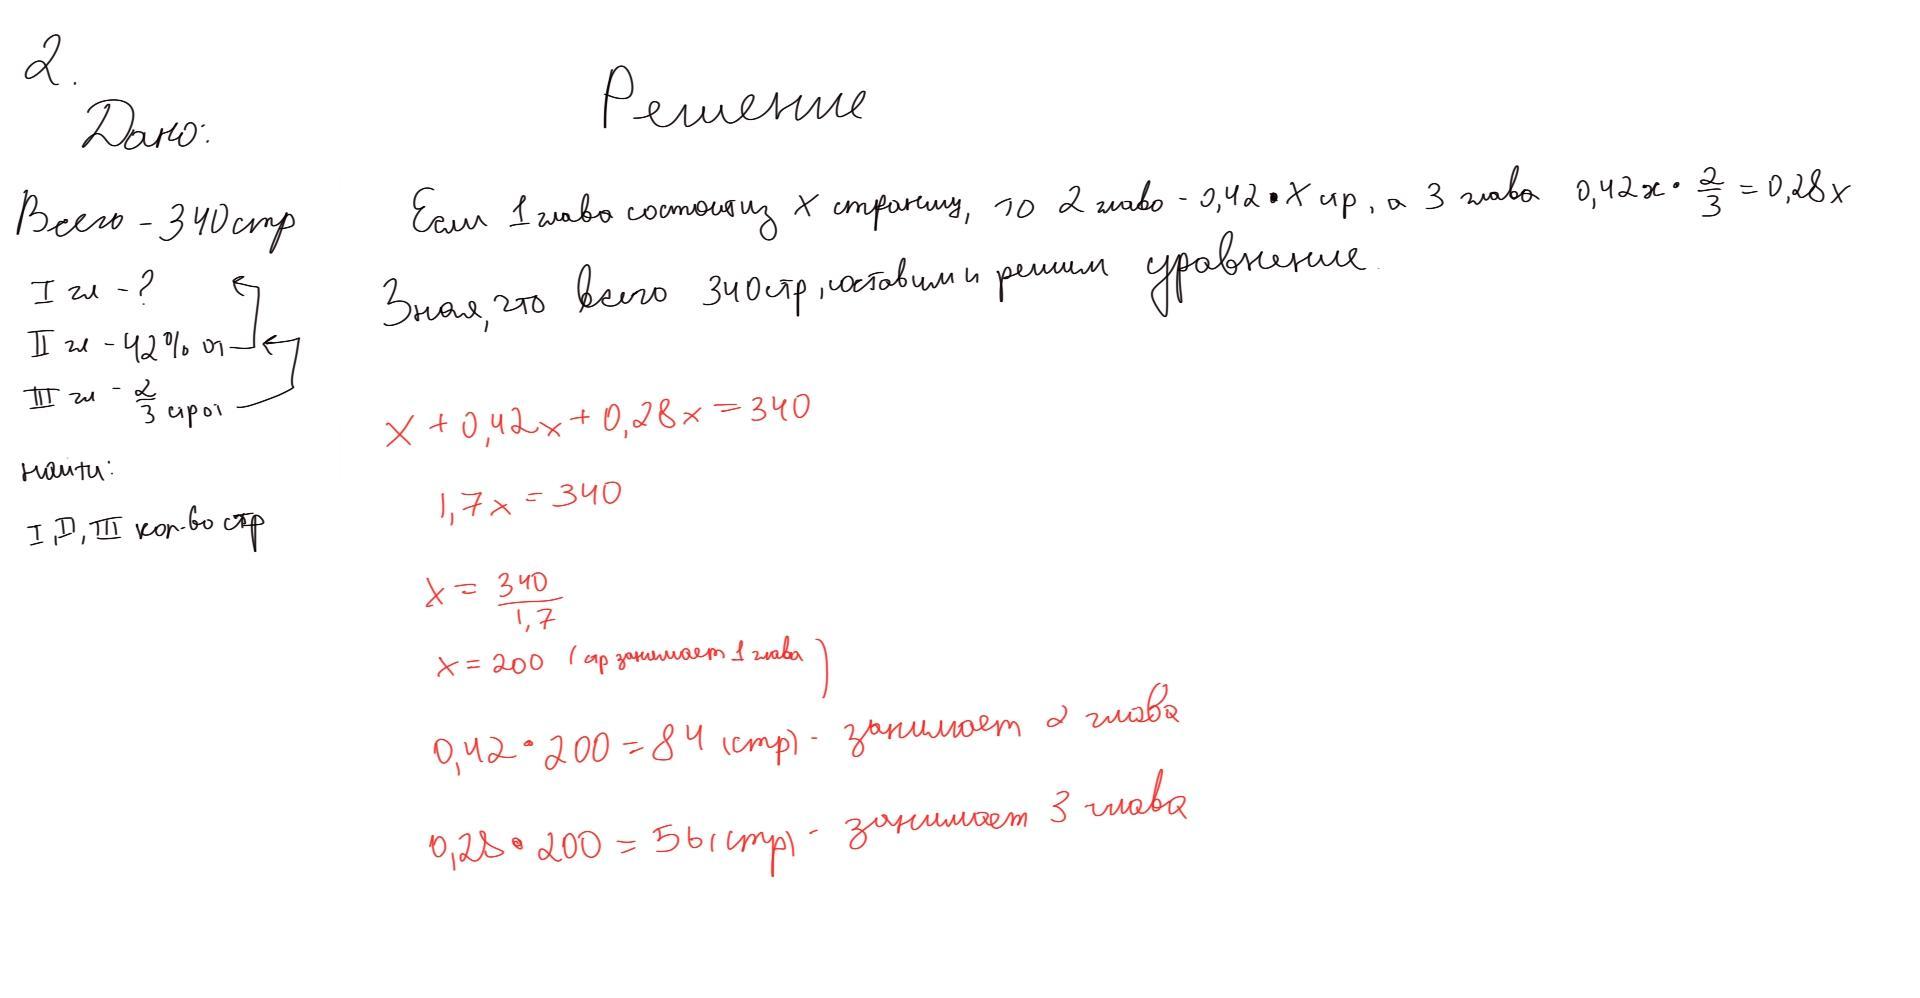 2.
Дано:
Всего - 340 стр
I гл - ?
II гл - 42% от
III гл - 2/3 стр от
найти:
I, II, III кол-во стр
Решение
Если 1 глава состоит из x страниц, то 2 глава - 0,42 • x стр, а 3 глава 0,42x • 2/3 = 0,28x
Зная, что всего 340 стр, составим и решим уравнение.
x + 0,42x + 0,28x = 340
1,7x = 340
x = 340/1,7
x = 200 (стр занимает 1 глава)
0,42 • 200 = 84 (стр) - занимает 2 глава
0,28 • 200 = 56 (стр) - занимает 3 глава